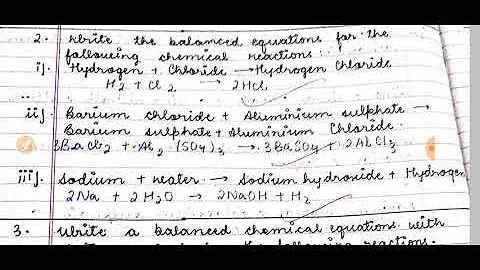 2. Write the balanced equations for the
following chemical reactions:
i). Hydrogen + Chloride → Hydrogen Chloride
H2 + Cl2 → 2HCl
ii). Barium chloride + Aluminium sulphate →
Barium sulphate + Aluminium Chloride.
3BaCl2 + Al2 (SO4)3 → 3BaSO4 + 2AlCl3
iii). Sodium + water → Sodium hydroxide + Hydrogen
2Na + 2H2O → 2NaOH + H2
3. Write a balanced chemical equations with
the following reactions.